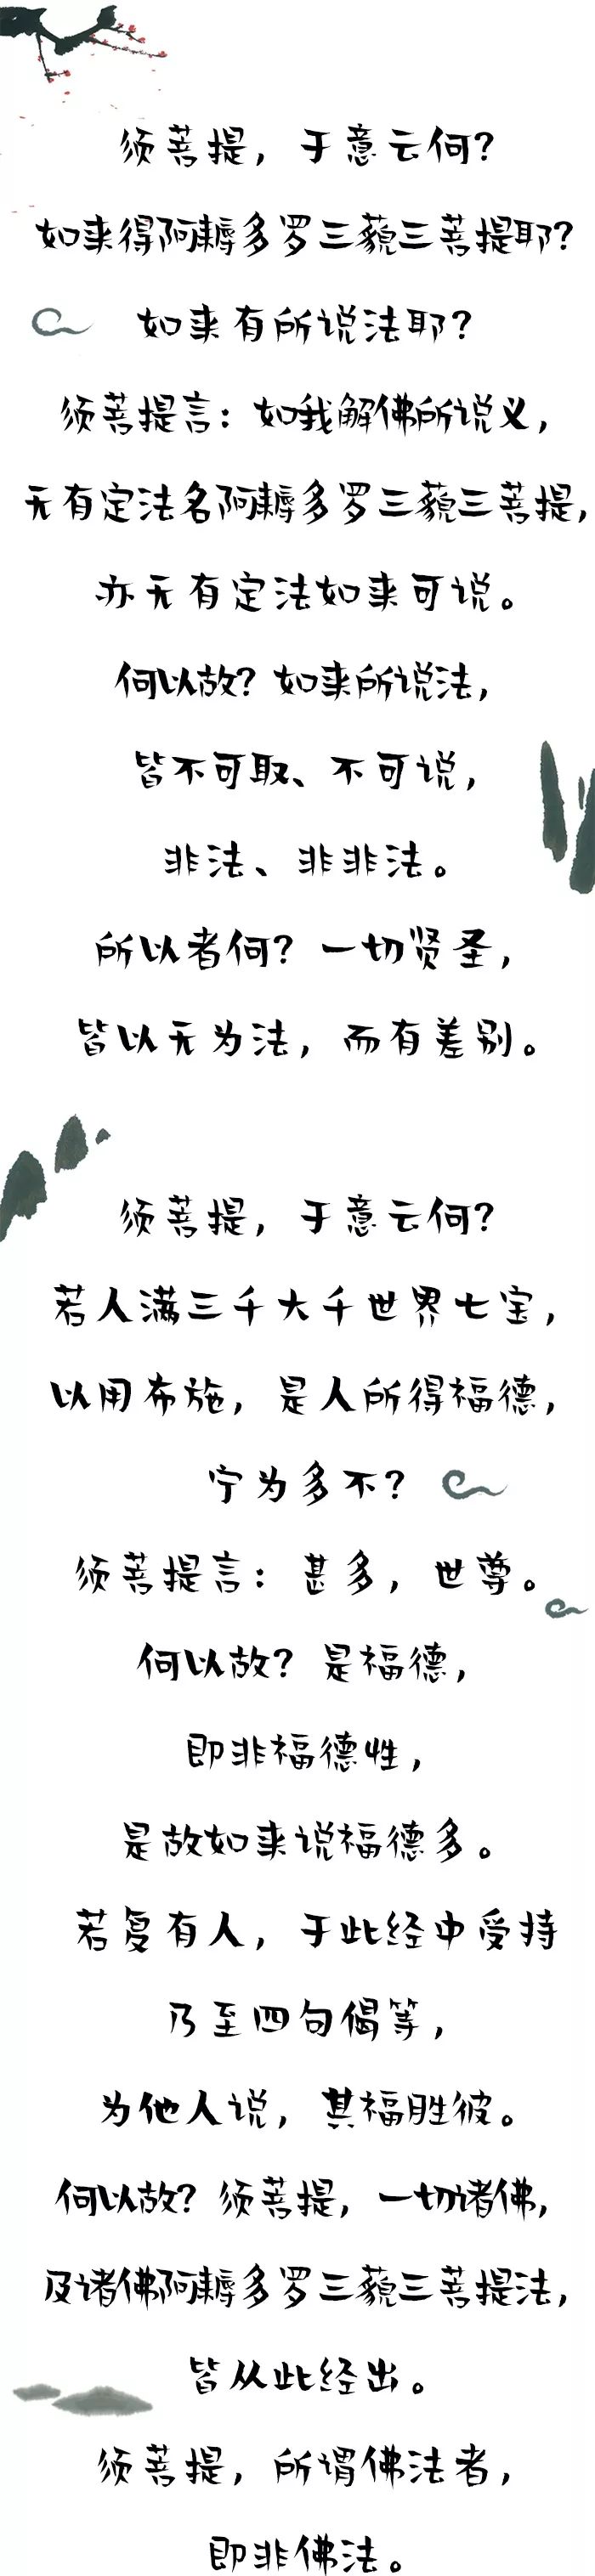 须菩提，于意云何？
如来得阿耨多罗三藐三菩提耶？
如来有所说法耶？
须菩提言：如我解佛所说义，
无有定法名阿耨多罗三藐三菩提，
亦无有定法如来可说。
何以故？如来所说法，
皆不可取、不可说，
非法、非非法。
所以者何？一切贤圣，
皆以无为法，而有差别。
须菩提，于意云何？
若人满三千大千世界七宝，
以用布施，是人所得福德，
宁为多不？
须菩提言：甚多，世尊。
何以故？是福德，
即非福德性，
是故如来说福德多。
若复有人，于此经中受持
乃至四句偈等，
为他人说，其福胜彼。
何以故？须菩提，一切诸佛，
及诸佛阿耨多罗三藐三菩提法，
皆从此经出。
须菩提，所谓佛法者，
即非佛法。